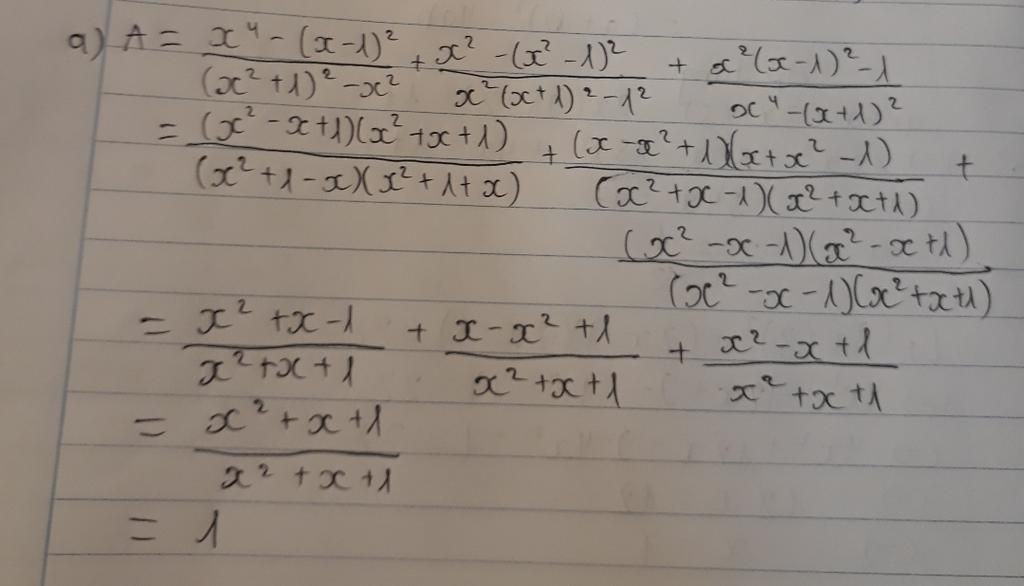 a) A = \frac{x^4 - (x-1)^2}{(x^2+1)^2 - x^2} + \frac{x^2 - (x^2-1)^2}{x^2(x+1)^2 - 1^2} + \frac{x^2(x-1)^2 - 1}{x^4 - (x+1)^2}
= \frac{(x^2 - x + 1)(x^2 + x + 1)}{(x^2 + 1 - x)(x^2 + 1 + x)} + \frac{(x - x^2 + 1)(x + x^2 - 1)}{(x^2 + x - 1)(x^2 + x + 1)} +
\frac{(x^2 - x - 1)(x^2 - x + 1)}{(x^2 - x - 1)(x^2 + x + 1)}
= \frac{x^2 + x - 1}{x^2 + x + 1} + \frac{x - x^2 + 1}{x^2 + x + 1} + \frac{x^2 - x + 1}{x^2 + x + 1}
= \frac{x^2 + x + 1}{x^2 + x + 1}
= 1